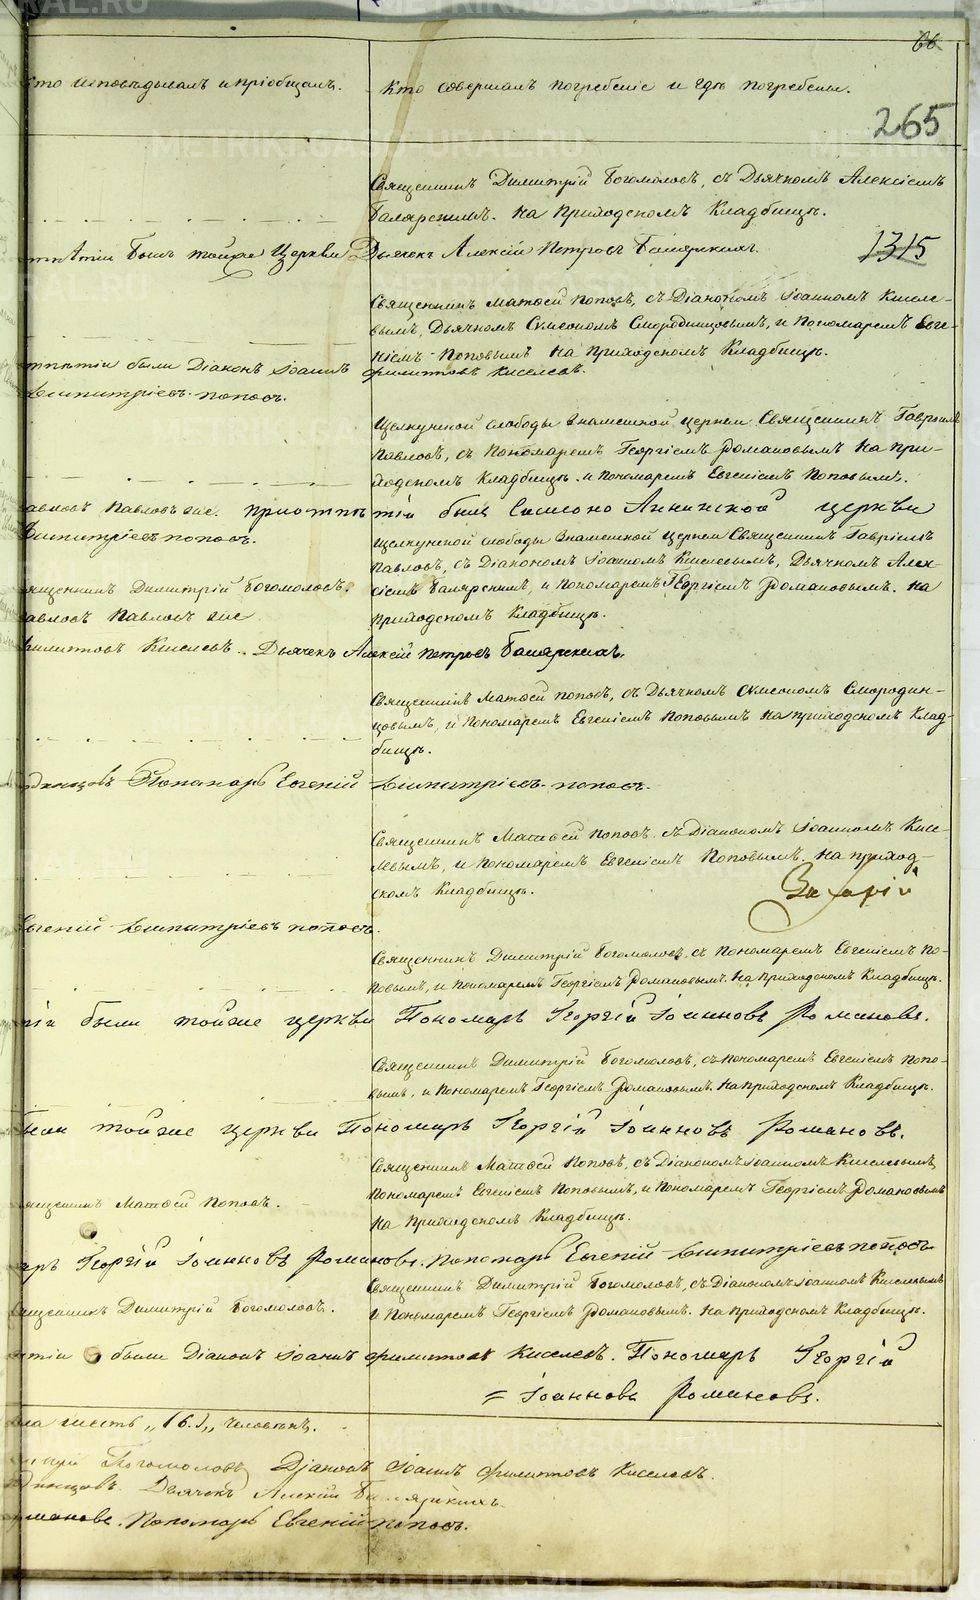 66
Кто исповѣдывалъ и пріобщалъ. Кто совершалъ погребеніе и гдѣ погребены.
265
Священникъ Димитрій Богомоловъ, съ Дьячкомъ Алексіемъ
на приходскомъ Кладбищѣ.
былъ тойже Церкви Дьячекъ Алексій Петровъ
1315
Священникъ Матвей Поповъ, съ Діакономъ Іоанномъ Киселе-
вымъ, Дьячкомъ Сѵмеономъ Смородинцовымъ, и Пономаремъ Евге-
ніемъ Поповымъ на приходскомъ Кладбищѣ.
были Діаконъ Іоаннъ Филиповъ Киселевъ.
Димитріевъ Поповъ.
слободы Знаменской церкви Священникъ Гавріилъ
Павловъ, съ Пономаремъ Георгіемъ Романовымъ на при-
ходскомъ Кладбищѣ и Пономаремъ Евгеніемъ Поповымъ.
Павловъ были Симеоно Аннинской церкви
Димитріевъ Поповъ.
слободы Знаменской церкви Священникъ Гавріилъ
Павловъ, съ Діакономъ Іоанномъ Киселевымъ, Дьячкомъ Алек-
сіемъ и Пономаремъ Георгіемъ Романовымъ. на
приходскомъ Кладбищѣ.
ященникъ Димитрій Богомоловъ.
Павловъ
Киселевъ. Дьячекъ Алексій Петровъ
Священникъ Матвей Поповъ, съ Дьячкомъ Сѵмеономъ Смородин-
цовымъ, и Пономаремъ Евгеніемъ Поповымъ на приходскомъ Клад-
бищѣ.
Пономарь Евгеній Димитріевъ Поповъ.
Священникъ Матвей Поповъ съ Діакономъ Іоанномъ Кисе-
левымъ, и Пономаремъ Евгеніемъ Поповымъ. на приход-
скомъ Кладбищѣ.
Евгеній Димитріевъ Поповъ.
Священникъ Димитрій Богомоловъ, съ Пономаремъ Евгеніемъ По-
повымъ, и Пономаремъ Георгіемъ Романовымъ. на приходскомъ Кладбищѣ.
были тойже церкви Пономарь Георгій Іоанновъ Романовъ.
Священникъ Димитрій Богомоловъ, съ Пономаремъ Евгеніемъ Попо-
вымъ, и Пономаремъ Георгіемъ Романовымъ. на приходскомъ Кладбищѣ.
тойже церкви Пономарь Георгій Іоанновъ Романовъ.
Священникъ Матвей Поповъ, съ Діакономъ Іоанномъ Киселевымъ,
Пономаремъ Евгеніемъ Поповымъ, и Пономаремъ Георгіемъ Романовымъ
на приходскомъ Кладбищѣ.
ященникъ Матвей Поповъ.
арь Георгій Іоанновъ Романовъ. Пономарь Евгеній Димитріевъ Поповъ
Священникъ Димитрій Богомоловъ, съ Діакономъ Іоанномъ Киселевымъ
и Пономаремъ Георгіемъ Романовымъ. на приходскомъ Кладбищѣ.
ященникъ Димитрій Богомоловъ.
были Діаконъ Іоаннъ Филиповъ Киселевъ. Пономарь Георгій
= Іоанновъ Романовъ.
шесть „16.„ человѣкъ.
Богомоловъ Діаконъ Іоаннъ Филиповъ Киселевъ.
Дьячекъ Алексій
Пономарь Евгеній Поповъ.
METRIKI.GASO-URAL.RU